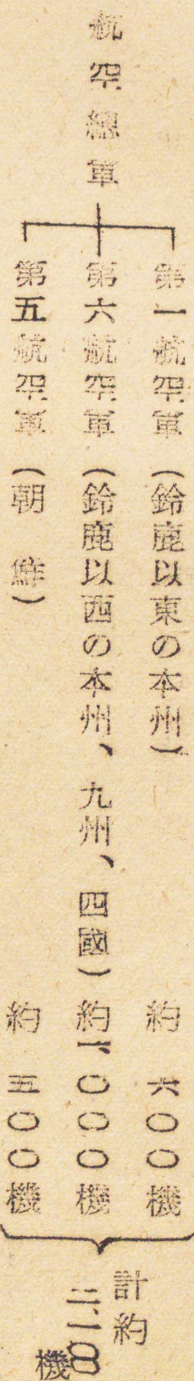 航空總軍
第一航空軍(鈴鹿以東の本州) 約 六〇〇機
第六航空軍(鈴鹿以西の本州、九州、四國) 約一、〇〇〇機
第五航空軍(朝鮮) 約 五〇〇機
計約
二、一〇〇
機